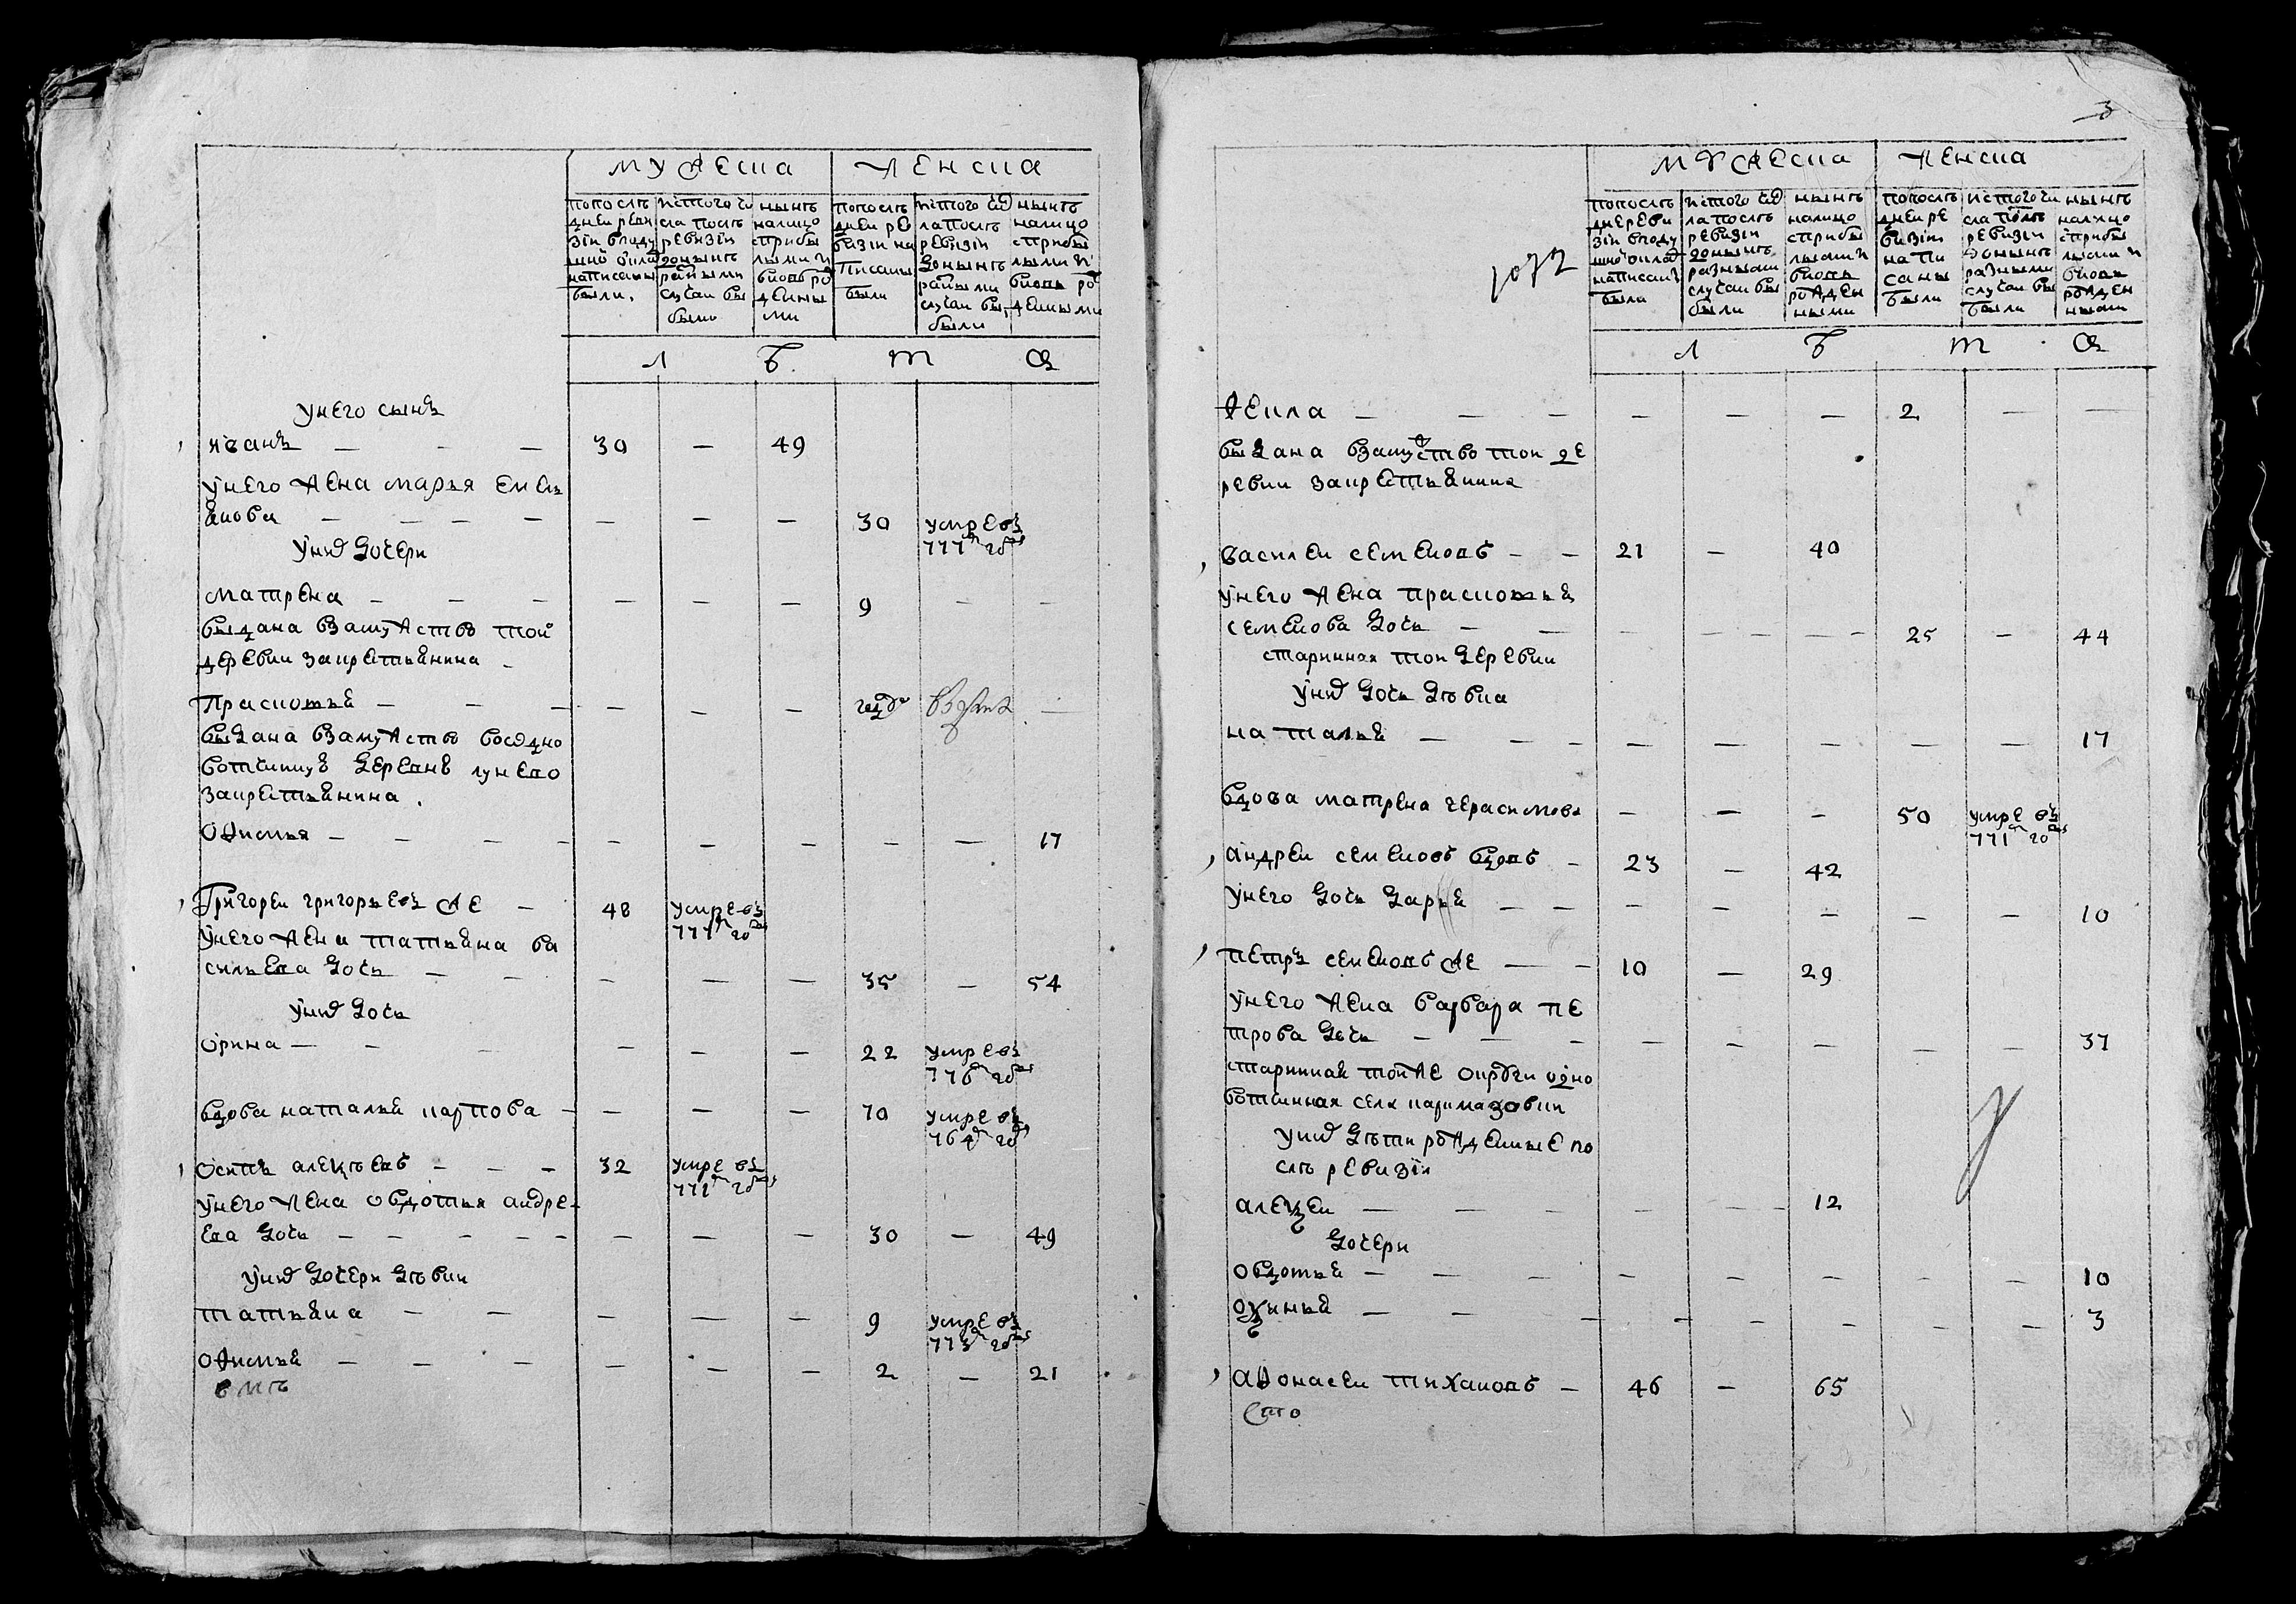 мужеска женска
по послѣ дней ревизіи в подушной оклад написаны были
ис того числа послѣ ревизіи до нынѣ разными случаи выбыло
нынѣ на лицо с прибылыми и вновь рожденными
по послѣ дней ревизіи написаны были
ис того числа послѣ ревизіи до нынѣ разными случаи выбыли
нынѣ на лицо с прибылыми и вновь рожденными
Л Ѣ Т Ъ
у него сынъ
иванъ — — — 30 — 49
у него жена марья емель
янова — — — — — — — 30 умре въ
777м году
у них дочери
матрена — — — — — — 9 — —
выдана взамужство той
деревни за крестьянина —
Прасковья — — — — — —
выдана взамужство во одно
вотчинную деревню лунево
за крестьянина
офимья — — — — — — — — — 17
Григорей григорьевъ же — 48 умре въ
777м году
у него жена татьяна ва
сильева дочь — — — — — 35 — 54
у них дочь
орина — — — — — — 22 умре въ
776м году
вдова наталья карпова — — — — 70 умре въ
764м году
Осипъ алексѣевъ — — — 32 умре въ
771м году
у него жена овдотья андре
ева дочь — — — — — — — — 30 — 49
у них дочери дѣвки
татьяна — — — — — 9 умре въ
773м году
офимья — — — — — — 2 — 21
вмѣ
3
1072
мужеска женска
по послѣ дне ревизіи в подушной оклад написаны были
ис того числа послѣ ревизіи до нынѣ разными случаи выбыли
нынѣ на лицо с прибылыми и вновь рожденными
по послѣ дней ревизіи написаны были
ис того числа послѣ ревизіи до нынѣ разными случаи выбыли
нынѣ на лицо с прибылыми и вновь рожденными
Л Ѣ Т Ъ
фекла — — — — — — 2 — —
выдана взамужство той де
ревни за крестьянина
василей семеновъ — — 21 — 40
у него жена прасковья
семенова дочь — — — — — — — 25 — 44
старинная той деревни
у них дочь дѣвка
наталья — — — — — — — — — 17
вдова матрена герасимова — — — 50 умре въ
771м году
андрей семеновъ вдовъ — 23 — 42
у него дочь дарья — — — — — — — 10
петръ семеновъ же — — 10 — 29
у него жена варвара пе
трова дочь — — — — — — — — 37
старинная той же округи одно
вотчинная села
у них дѣти рожденные по
слѣ ревизіи
алексей — — — — — — 12
дочери
овдотья — — — — — — — — 10
оксинья — — — — — — — — 3
афонасей тихановъ — 46 — 65
Сто